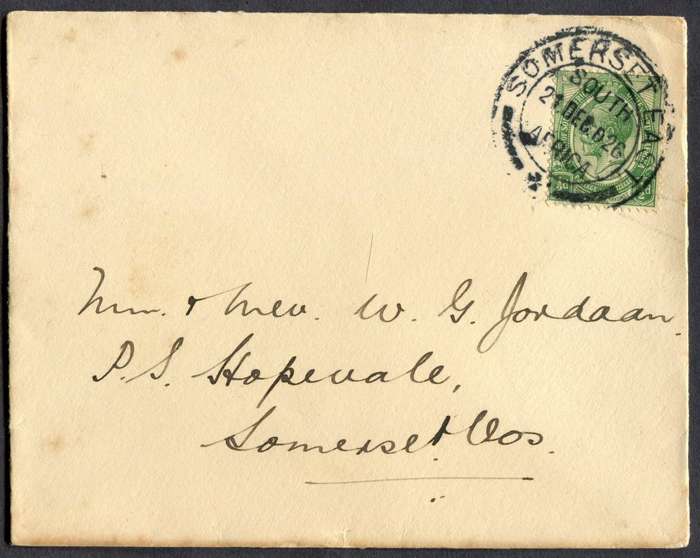 SOMERSET EAST
SOUTH
21 DEC 926
AFRICA
Mnr. & Mev. W. G. Jordaan.
P.S. Hopevale,
Somerset. Oos.